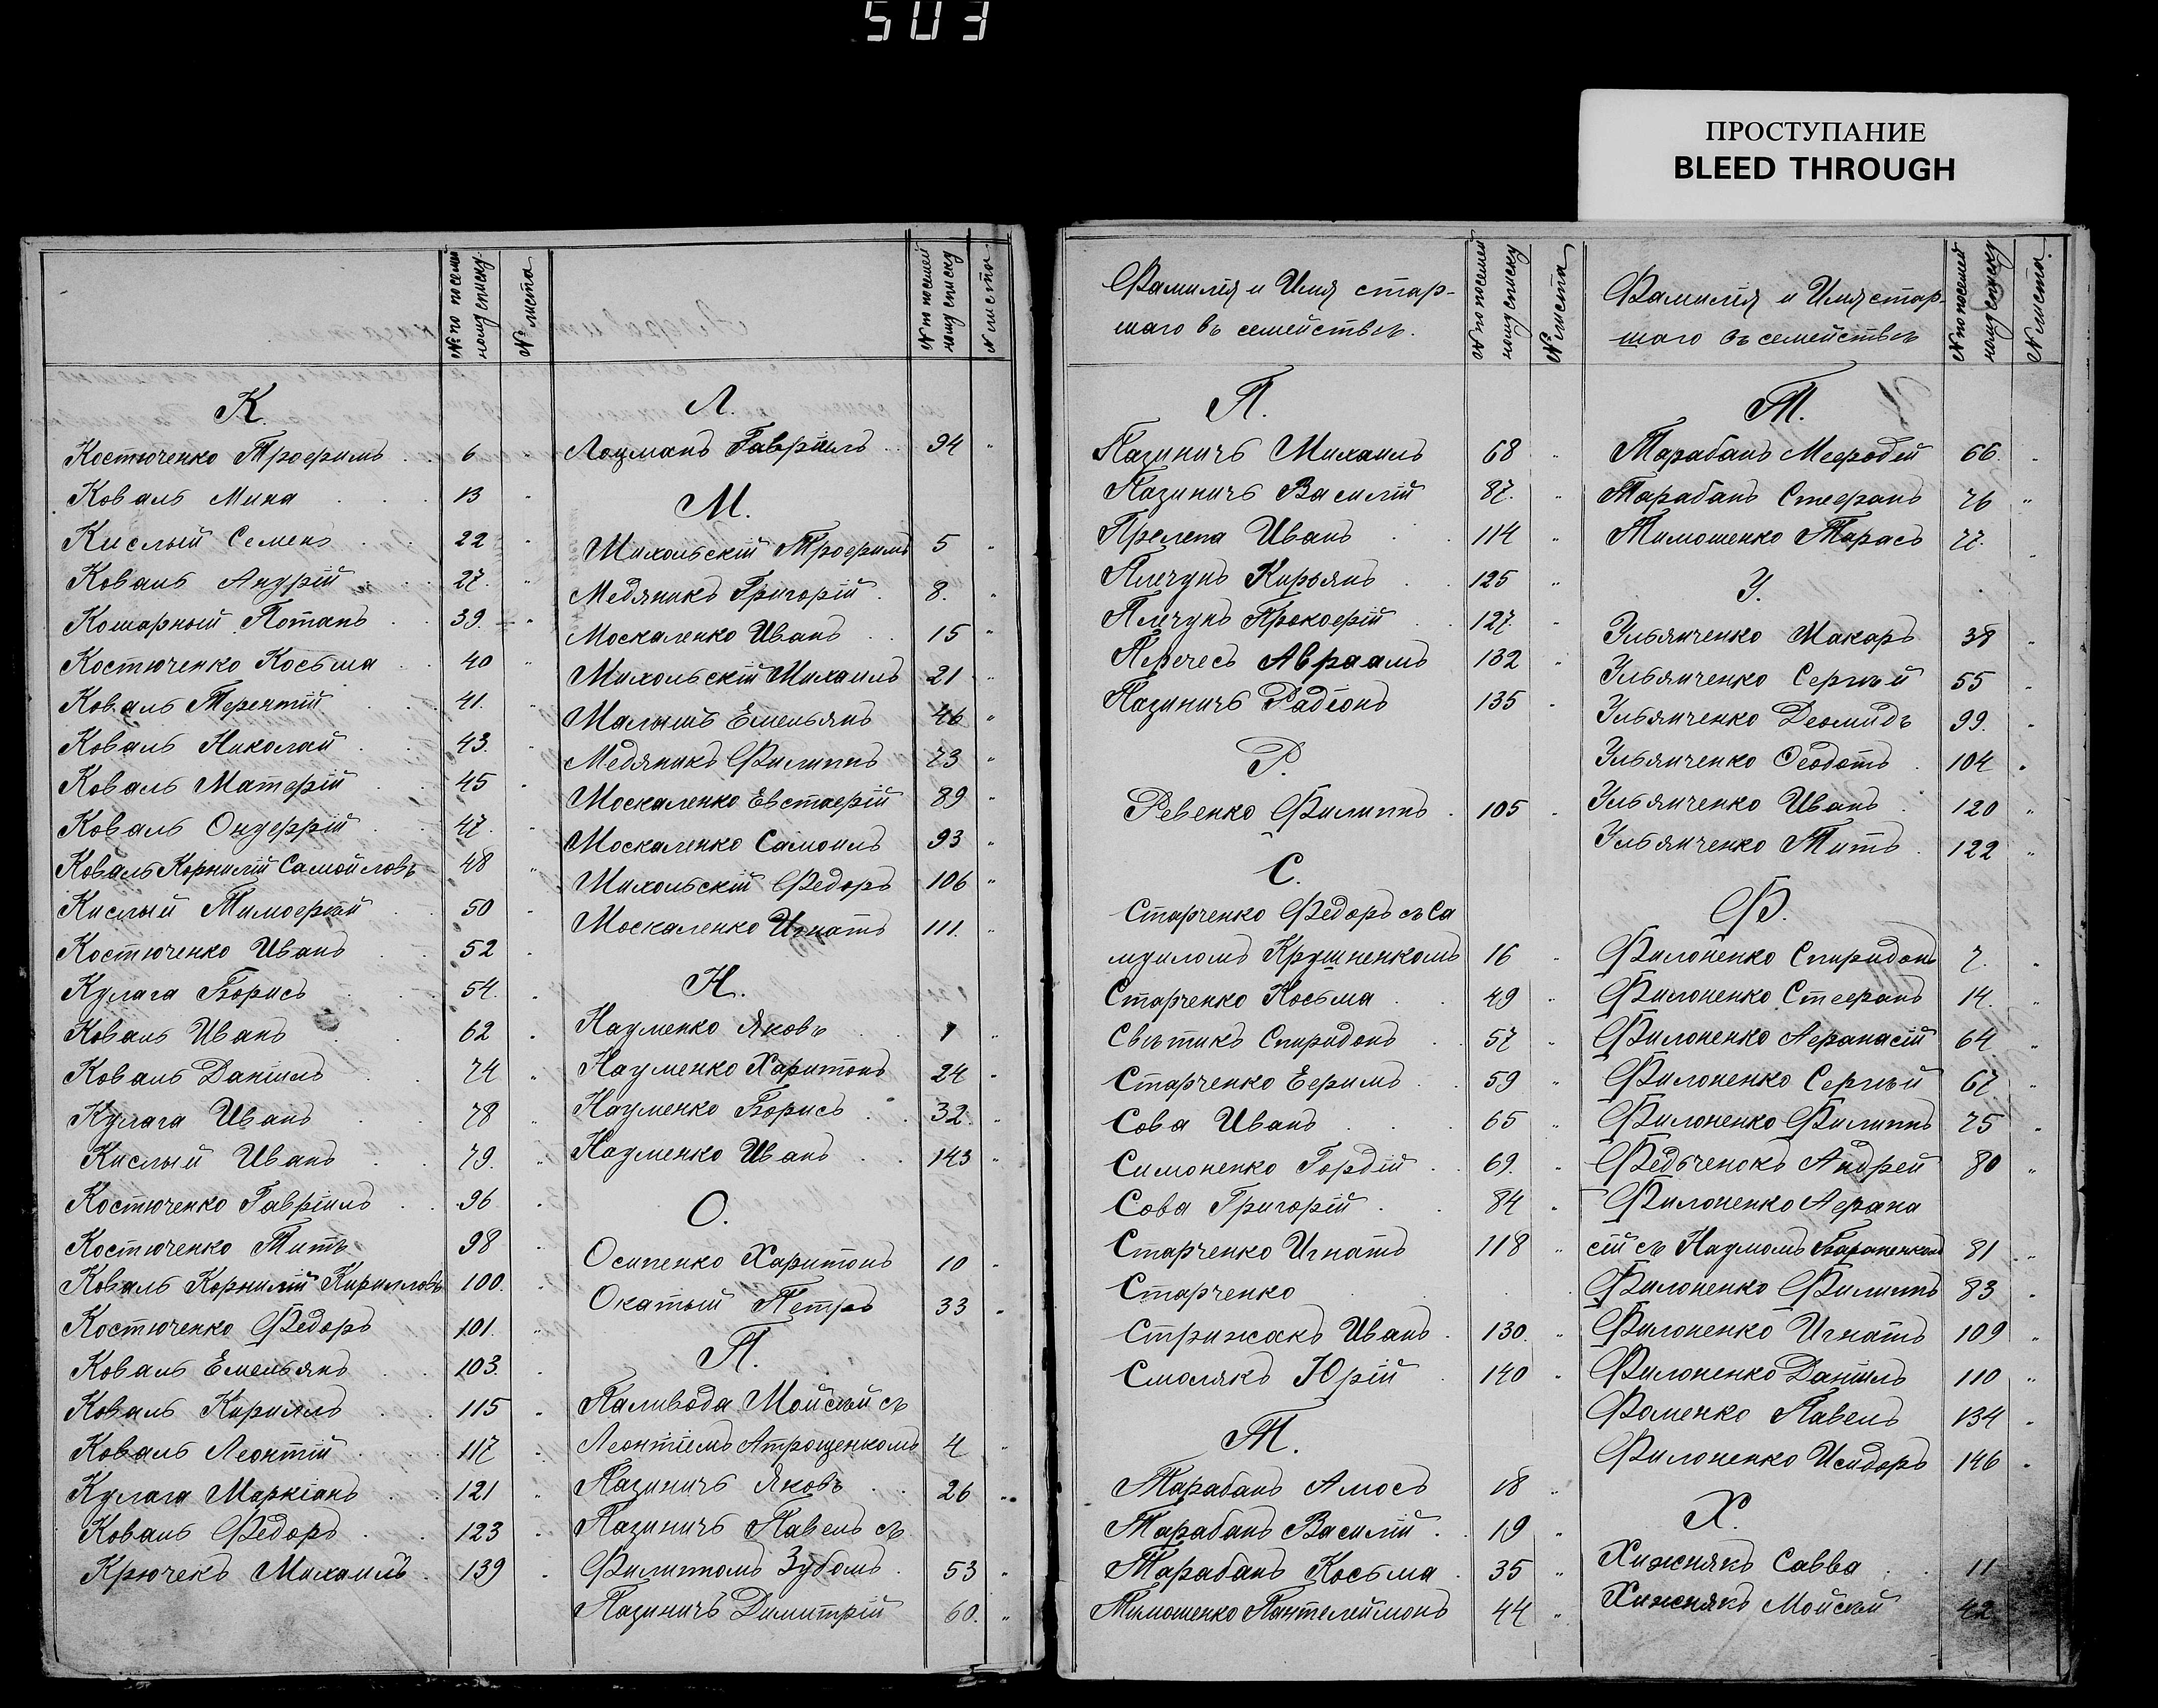 503
ПРОСТУПАНИЕ
BLEED THROUGH
№ по посемей
ному списку.
№ листа
№ по посемей
ному списку
№ листа
К.
Костюченко Трофимъ 6 "
Коваль Мина 13 "
Кислый Семенъ 22 "
Коваль Андрій 27. "
Кошарный Потапъ 39. "
Костюченко Косьма 40 "
Коваль Терентій 41. "
Коваль Николай 43. "
Коваль Матфій 45 "
Коваль Онуфрій 47. "
Коваль Корнилій Самойловъ 48 "
Кислый Тимофей 50 "
Костюченко Иванъ 52 "
Кулага Борисъ 54. "
Коваль Иванъ 62 "
Коваль Даніилъ 74 "
Кулага Иванъ 78 "
Кислый Иванъ 79. "
Костюченко Гавріилъ 96 "
Костюченко Титъ 98 "
Коваль Корнилій Кирилловъ 100. "
Костюченко Федоръ 101. "
Коваль Емельянъ 103. "
Коваль Кириллъ 115 "
Коваль Леонтій 117 "
Кулага Маркіанъ 121 "
Коваль Федоръ 123 "
Крючекъ Михаилъ 139 "
Л.
Лоцманъ Гавріилъ 94 "
М.
Михольскій Трофимъ 5 "
Медяникъ Григорій 8. "
Москаленко Иванъ 15 "
Михольскій Михаилъ 21 "
Малышъ Емельянъ 46 "
Медяникъ Филиппъ 73 "
Москаленко Евстафій 89 "
Москаленко Самоилъ 93 "
Михольскій Федоръ 106 "
Москаленко Игнатъ 111. "
Н.
Науменко Яковъ 1 "
Науменко Харитонъ 24 "
Науменко Борисъ 32. "
Науменко Иванъ 143 "
О.
Осипенко Харитонъ 10 "
Окатый Петръ 33 "
П.
Паливода Мойсей съ
Леонтіемъ Атрощенкомъ 4 "
Пазиничъ Яковъ 26 "
Пазиничъ Павелъ съ
Филиппомъ Зубомъ 53 "
Пазиничъ Димитрій 60. "
Фамилія и Имя стар-
шаго въ семействѣ.
№ по посемей
ному списку
№ листа
Фамилія и Имя стар-
шаго въ семействѣ
№ по посемей
ному списку
№ листа.
П.
Пазиничъ Михаилъ 68 "
Пазиничъ Василій 87. "
Прелепа Иванъ 114 "
Плечунъ Кирьянъ 125 "
Плечунъ Прокофій 127 "
Перечесъ Авраамъ 132 "
Пазиничъ Радіонъ 135 "
Р.
Ревенко Филиппъ 105 "
С.
Старченко Федоръ съ Са
муиломъ Крушненкомъ 16 "
Старченко Косьма 49 "
Свѣтикъ Спиридонъ 57 "
Старченко Ефимъ 59 "
Сова Иванъ 65 "
Симоненко Гордій 69. "
Сова Григорій 84 "
Старченко Игнатъ 118 "
Старченко
Стрижакъ Иванъ 130. "
Смолякъ Юрій 140 "
Т.
Тарабанъ Амосъ 18 "
Тарабанъ Василій 19 "
Тарабанъ Косьма 35 "
Тимошенко Пантелеймонъ 44 "
Т.
Тарабанъ Мефодій 66. "
Тарабанъ Стефанъ 76 "
Тимошенко Тарасъ 77. "
У.
Ульянченко Макаръ 38 "
Ульянченко Сергѣй 55 "
Ульянченко Деомидъ 99. "
Ульянченко Ѳеодотъ 104 "
Ульянченко Иванъ 120 "
Ульянченко Титъ 122 "
Ф.
Филоненко Спиридонъ 7. "
Филоненко Стефанъ 14. "
Филоненко Афанасій 64 "
Филоненко Сергѣй 67 "
Филоненко Филиппъ 75 "
Федьченокъ Андрей 80 "
Филоненко Афана
сій съ Наумомъ Бараненкомъ 81 "
Филоненко Филиппъ 83 "
Филоненко Игнатъ 109 "
Филоненко Даніилъ 110 "
Фоменко Павелъ 134 "
Филоненко Исидоръ 146 "
Х.
Хижнякъ Савва 11
Хижнякъ Мойсей 42